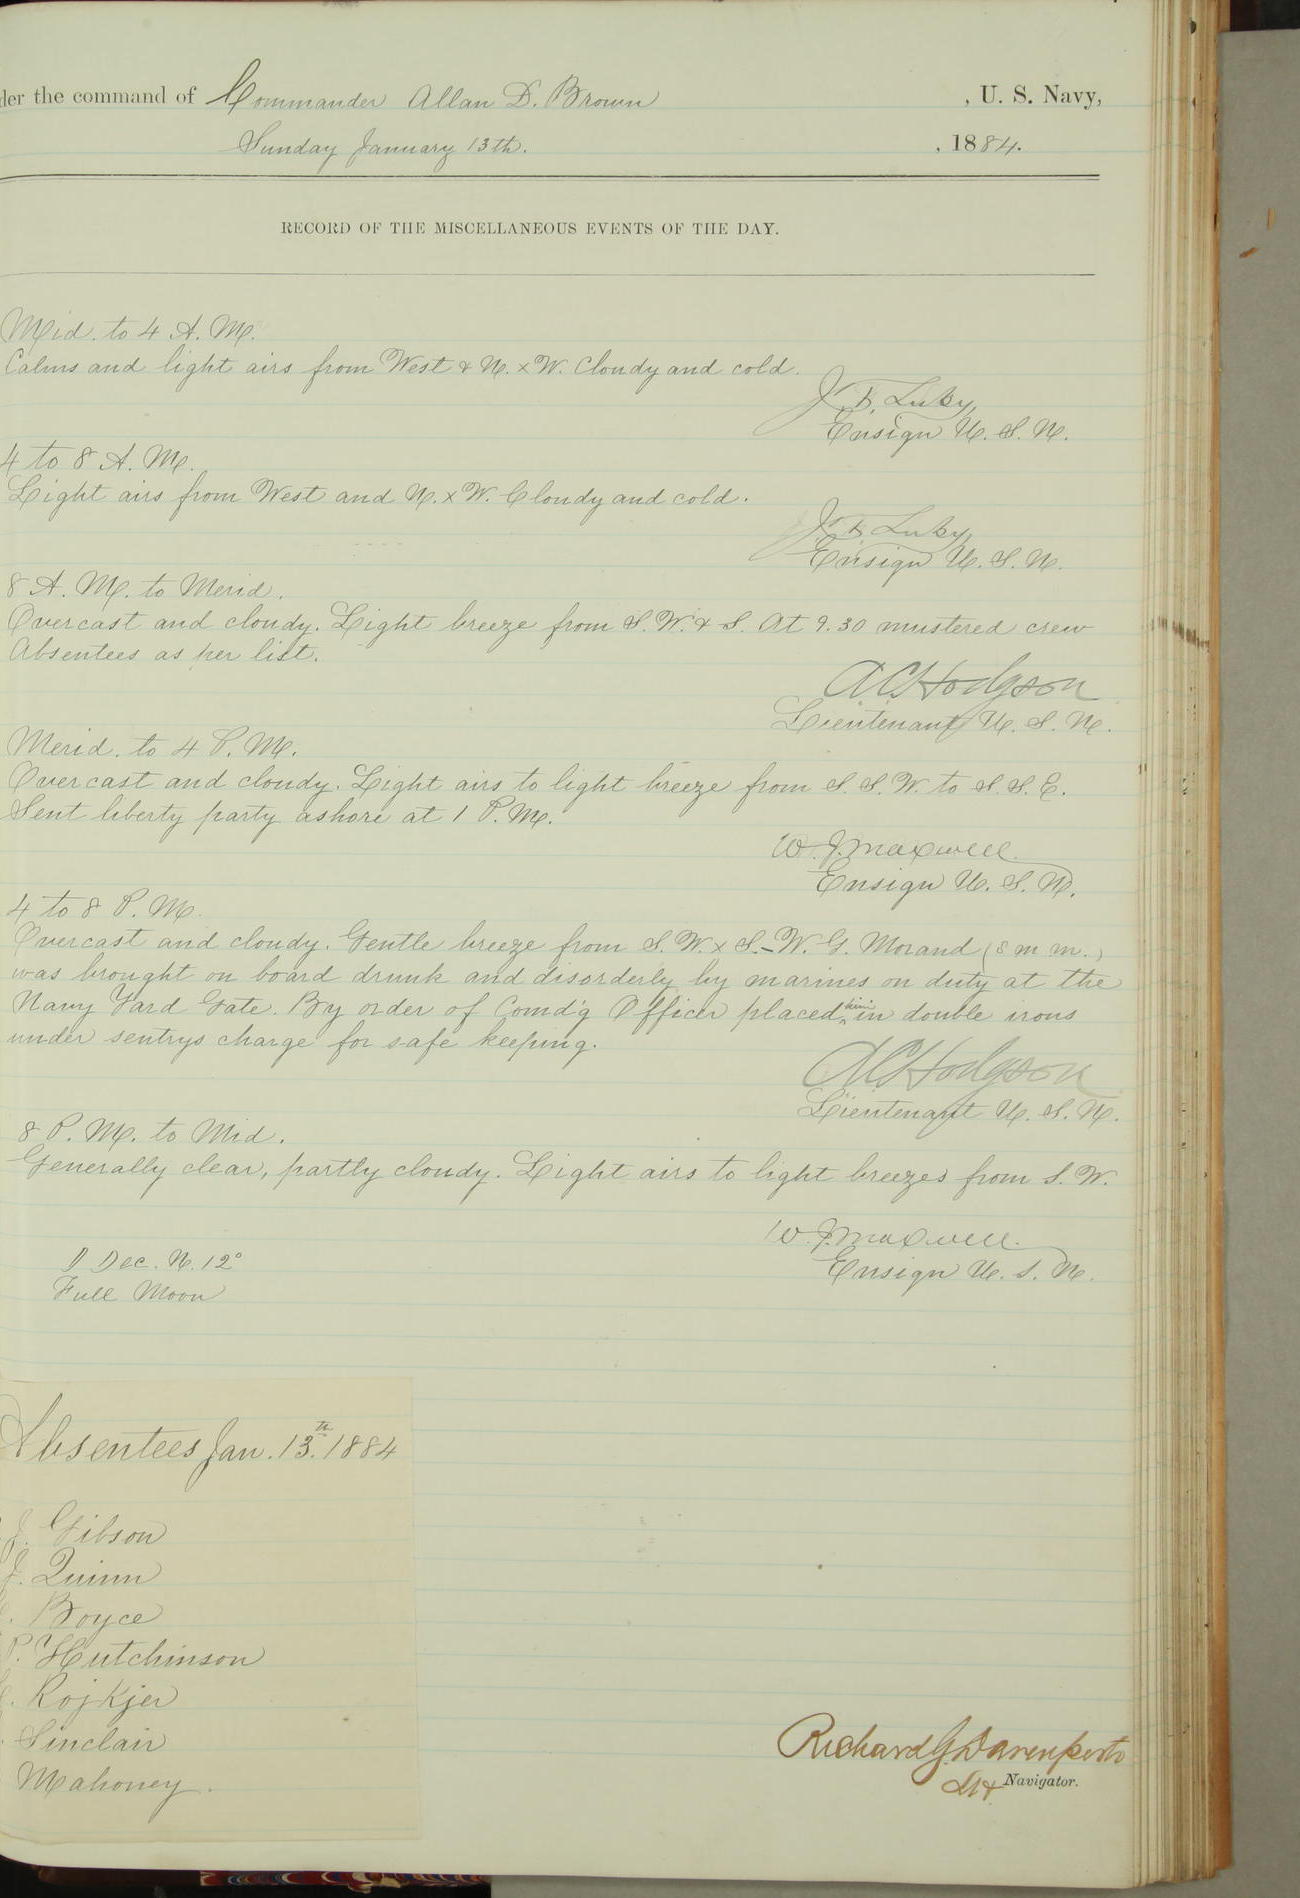 der the command of Commander Allan D. Brown , U. S. Navy,
Sunday January 13th. , 1884.
RECORD OF THE MISCELLANEOUS EVENTS OF THE DAY.
Mid. to 4 A. M.
Calms and light airs from West & N. x W. Cloudy and cold.
J. F. Luby,
Ensign U. S. N.
4 to 8 A. M.
Light airs from West and N. x W. Cloudy and cold.
J. F. Luby,
Ensign U. S. N.
8 A. M. to Merid.
Overcast and cloudy. Light breeze from S. W. & S. At 9.30 mustered crew
Absentees as per list.
A C Hodgson
Lieutenant U. S. N.
Merid. to 4 P. M.
Overcast and cloudy. Light airs to light breeze from S. S. W. to S. S. E.
Sent liberty party ashore at 1 P. M.
W. J. Maxwell
Ensign U. S. N.
4 to 8 P. M.
Overcast and cloudy. Gentle breeze from S. W. x S. – W. G. Morand (S m m.)
was brought on board drunk and disorderly by marines on duty at the
Navy Yard Gate. By order of Comd'g Officer placed him in double irons
under sentrys charge for safe keeping.
A C Hodgson
Lieutenant U. S. N.
8 P. M. to Mid.
Generally clear, partly cloudy. Light airs to light breezes from S. W.
W. J. Maxwell.
Ensign U. S. N.
Dec. N. 12°
Full Moon
Absentees Jan. 13th. 1884
J. Gibson
J. Quinn
Boyce
P. Hutchinson
Rojkjer
Sinclair
Mahoney.
Richard G. Davenport
Lt Navigator.